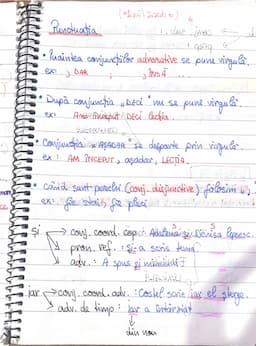 Punctuația
• Înaintea conjuncțiilor adversative se pune virgulă.
ex: , DAR , ÎNSĂ ...
• După conjuncția „DECI” nu se pune virgulă.
ex: Am început DECI lecția.
• Conjuncția AȘADAR se desparte prin virgulă.
ex: AM ÎNCEPUT, așadar, LECȚIA.
• Când sunt perechi (conj. disjunctive) folosim „,”
ex: fie stai, fie pleci
Și → conj. coord. cop.: și Denisa Popescu.
→ pron. ref.: Și-a scris tema
→ adv.: A spus și
iar → conj. coord. adv.: Costel scrie iar el șterge.
→ adv. de timp: Iar a întârziat
↓
din nou